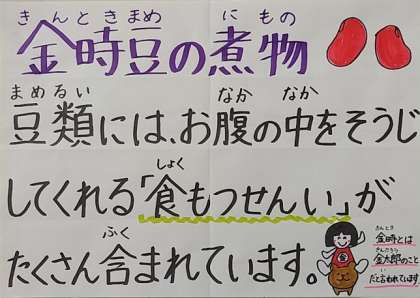 きんときまめ にもの
金時豆の煮物
まめるい なか なか
豆類には、お腹の中をそうじ
しょく
してくれる「食もつせんい」が
ふく
たくさん含まれています。
金
きんとき
金時とは
きんたろう
金太郎のこと
い
だと言われています